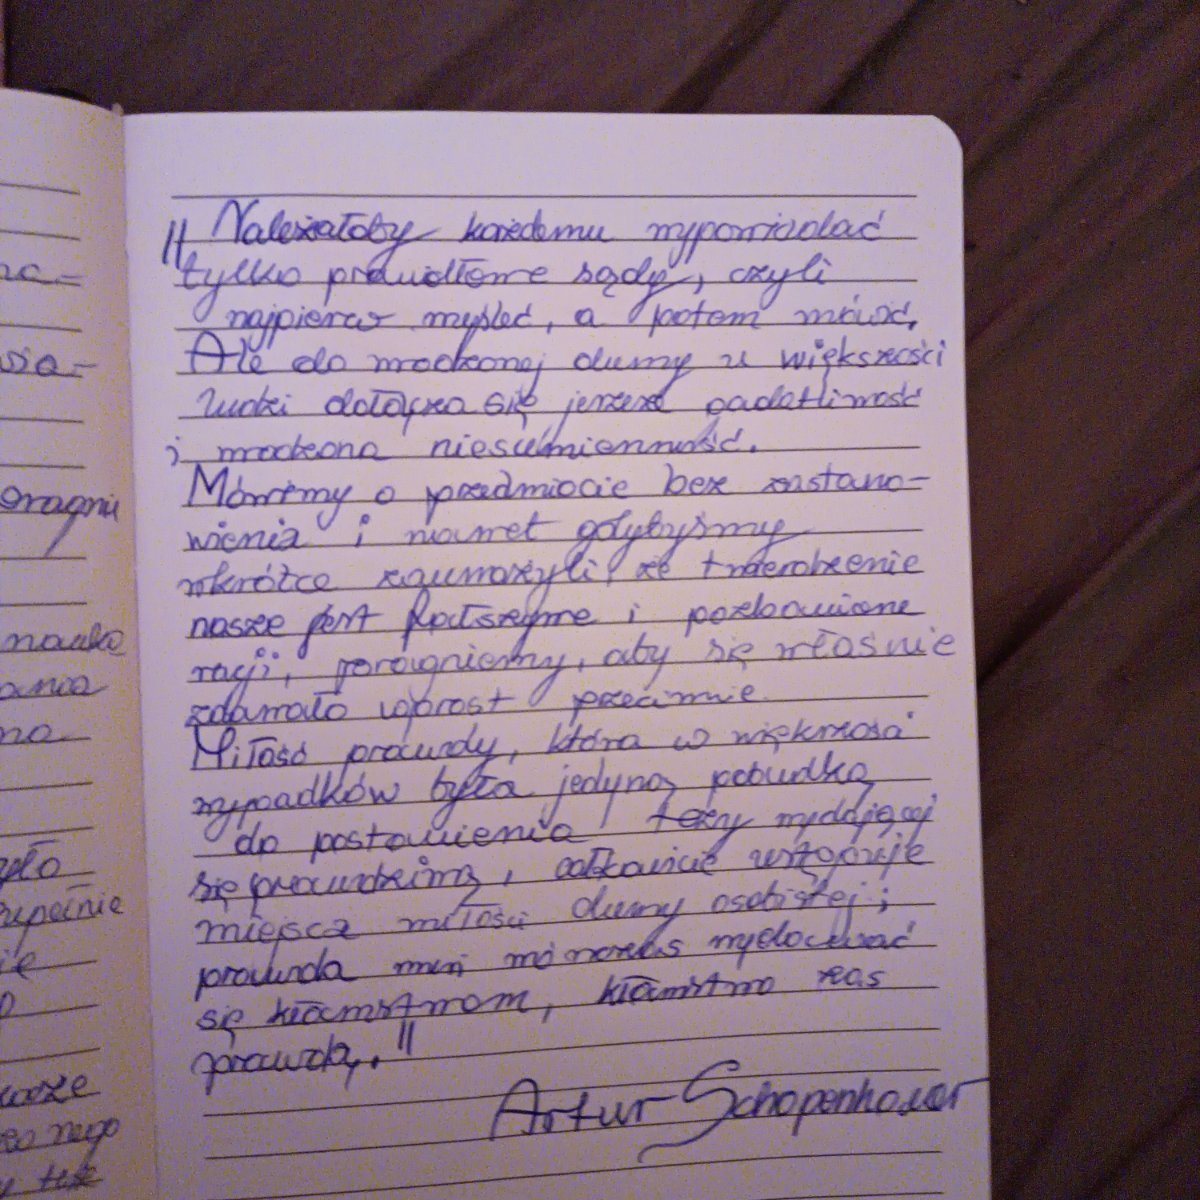 "Należałoby każdemu wypowiadać
tylko prawidłowe sądy, czyli
najpierw myśleć, a potem mówić.
Ale do wrodzonej dumy u większości
ludzi dołącza się jeszcze gadatliwość
i wrodzona niesumienność.
Mówimy o przedmiocie bez zastano-
wienia i nawet gdybyśmy
wkrótce zauważyli, że twierdzenie
nasze jest fałszywe i pozbawione
racji, pragniemy, aby się właśnie
zdawało wprost przeciwnie.
Miłość prawdy, która w większości
wypadków była jedyną pobudką
do postawienia tezy wydającej
się prawdziwą, całkowicie ustępuje
miejsca miłości dumy osobistej;
prawda musi wówczas wydawać
się kłamstwem, kłamstwo zaś
prawdą."
Artur Schopenhauer
na-
wia-
pragni
nauka
ania
na
yło
zupełnie
ie
o
nego
też